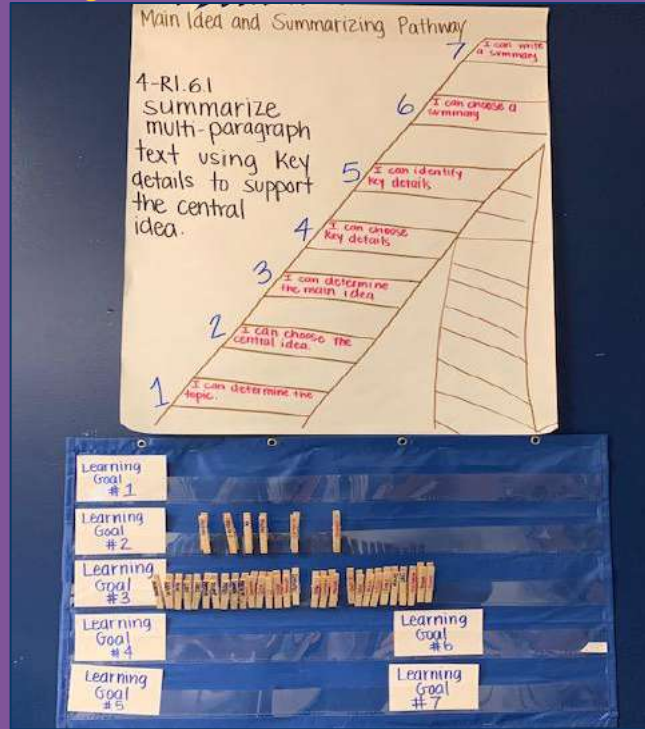 Main Idea and Summarizing Pathway
4-RI.6.1
summarize
multi-paragraph
text using key
details to support
the central
idea.
7
I can write
a summary
6
I can choose a
summary
5
I can identify
key details
4
I can choose
key details
3
I can determine
the main idea
2
I can choose the
central idea.
1
I can determine the
topic.
Learning
Goal
#1
Learning
Goal
#2
Learning
Goal
#3
Learning
Goal
#4
Learning
Goal
#6
Learning
Goal
#5
Learning
Goal
#7